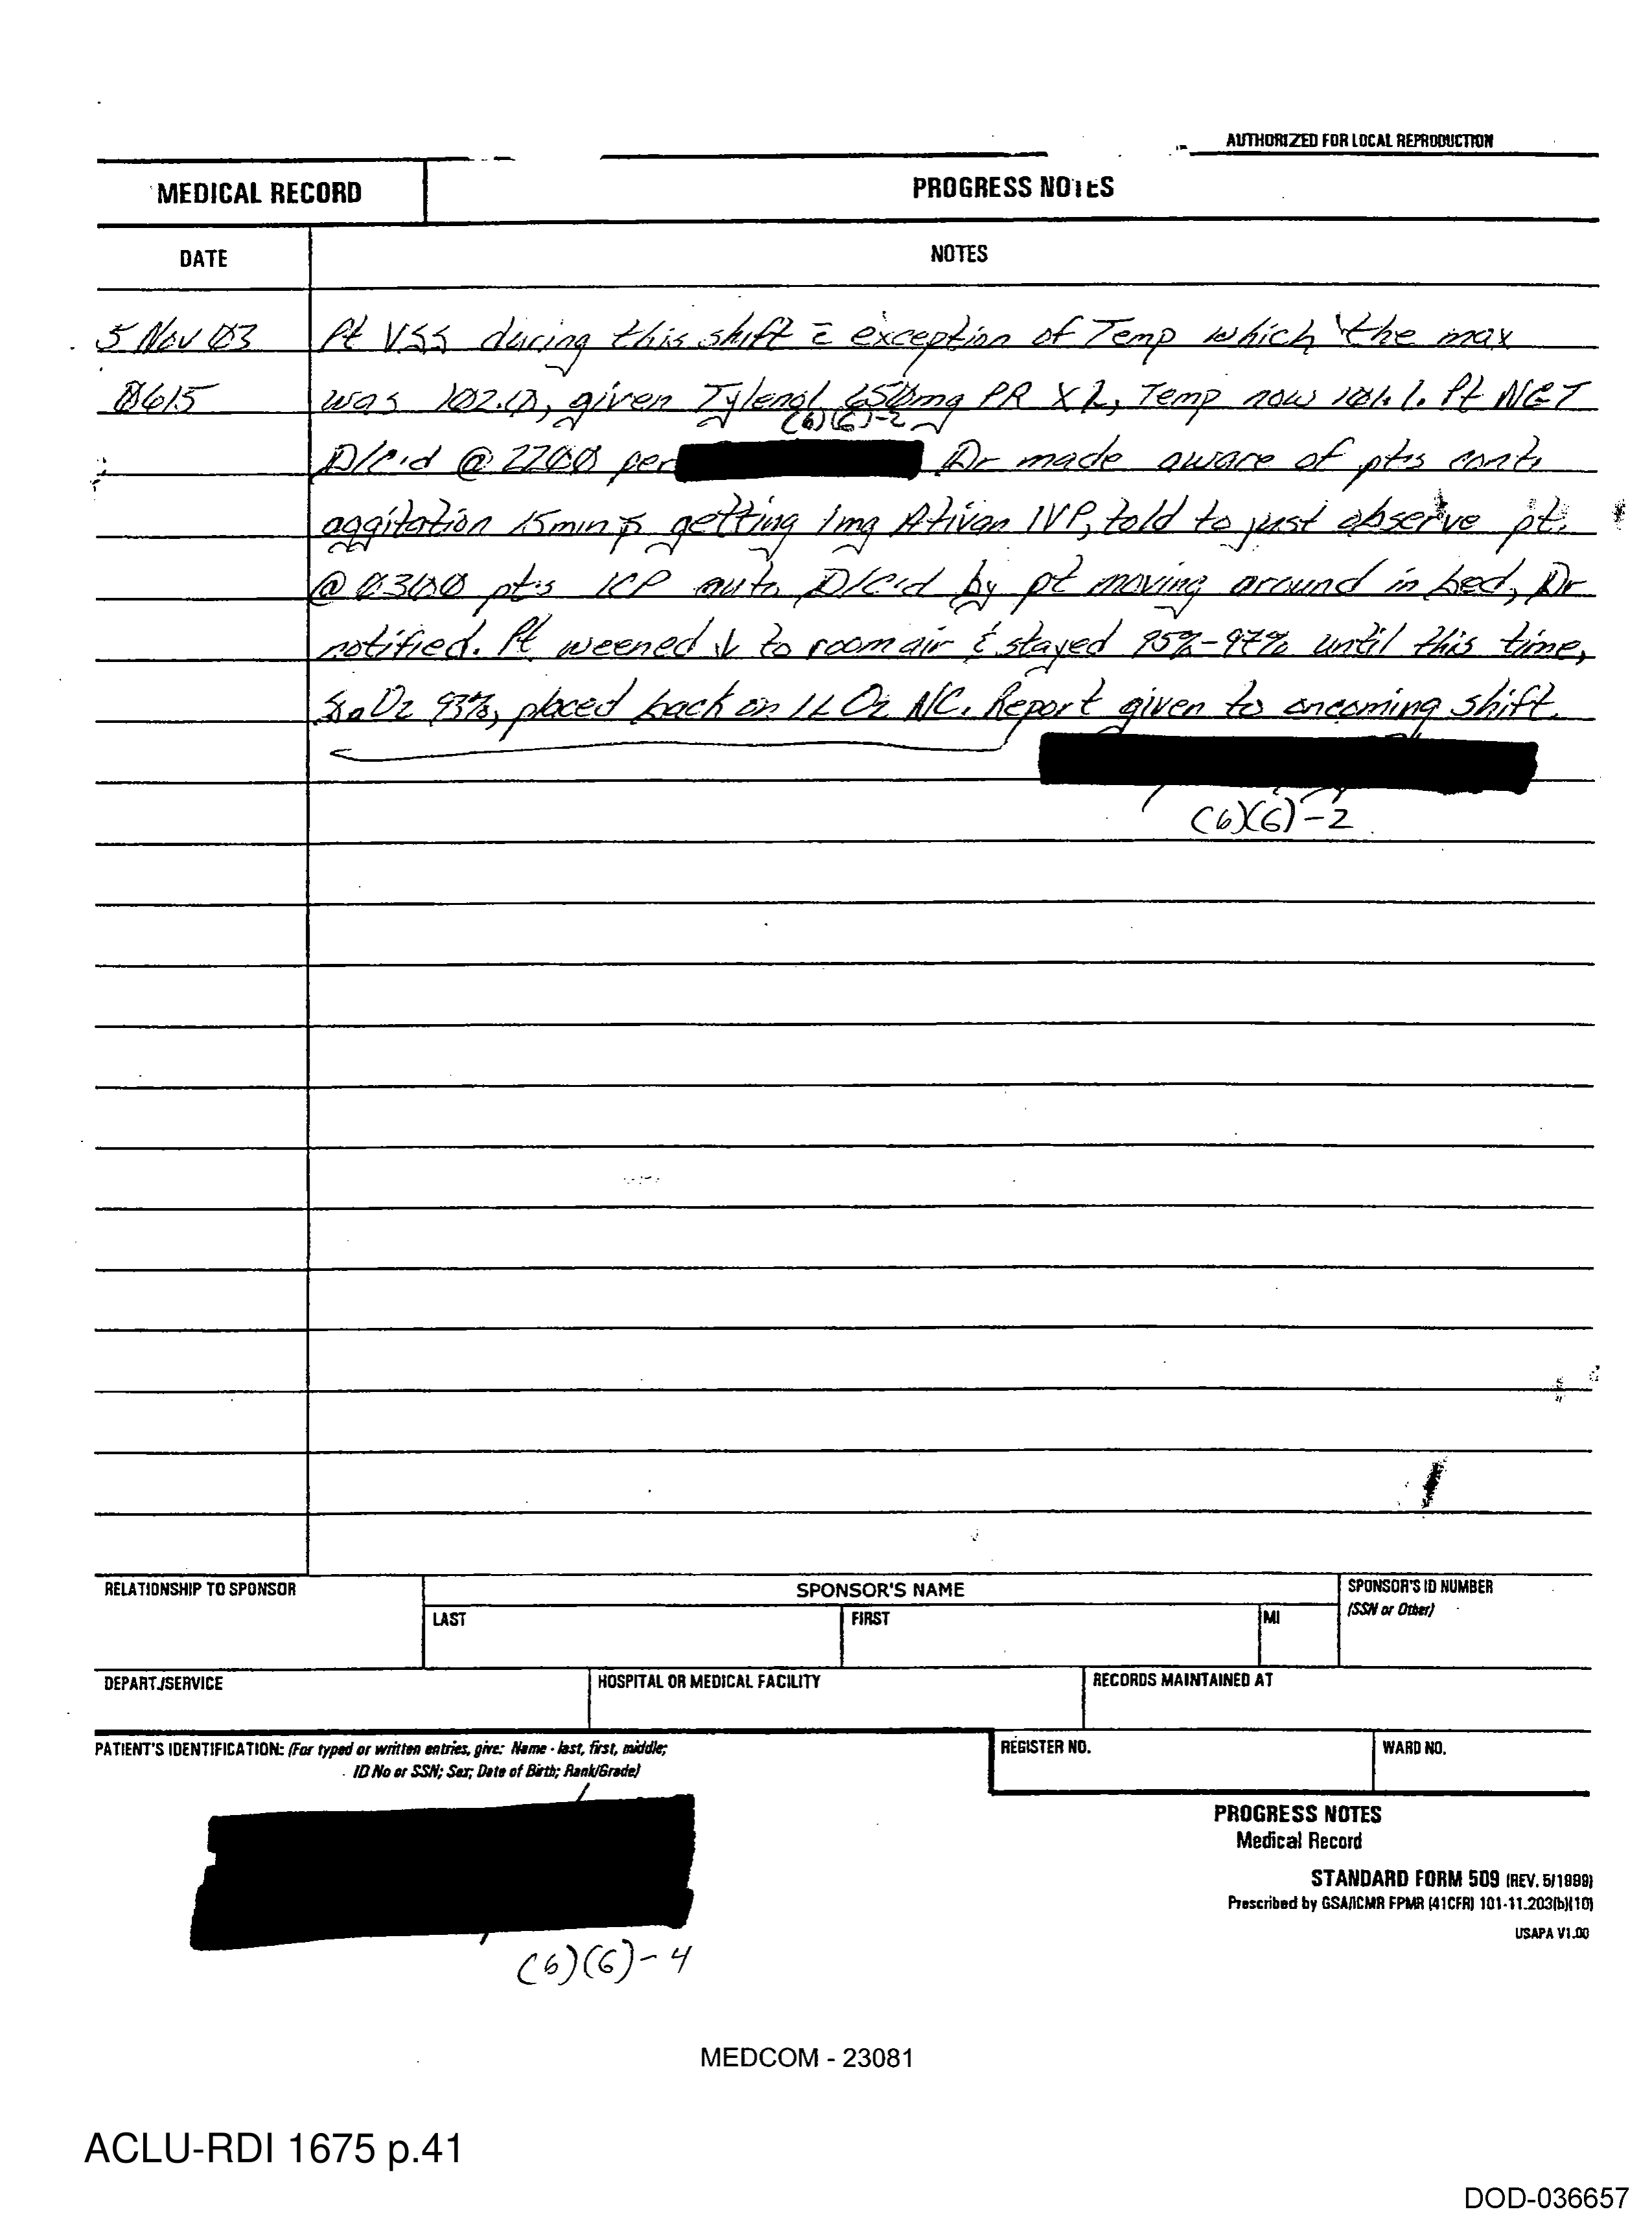 AUTHORIZED FOR LOCAL REPRODUCTION
MEDICAL RECORD
PROGRESS NOTES
DATE
NOTES
5 Nov 03 Pt VSS during this shift c̄ exception of Temp which the max
0615 was 102.0, given Tylenol 650mg PR X2, Temp now 101.1. Pt NGT
(6)(6)-2
D/C'd @ 2200 per Dr made aware of pts cont.
aggitation 15min p̄ getting 1mg Ativan IVP, told to just observe pt.
@ 0300 pts ICP auto D/C'd by pt moving around in bed, Dr
notified. Pt weened ↓ to room air & stayed 95%-97% until this time,
SaO2 93%, placed back on 1L O2 NC. Report given to oncoming shift.
(6)(6)-2
RELATIONSHIP TO SPONSOR
SPONSOR'S NAME
SPONSOR'S ID NUMBER
(SSN or Other)
LAST
FIRST
MI
DEPART./SERVICE
HOSPITAL OR MEDICAL FACILITY
RECORDS MAINTAINED AT
PATIENT'S IDENTIFICATION: (For typed or written entries, give: Name - last, first, middle;
ID No or SSN; Sex; Date of Birth; Rank/Grade)
REGISTER NO.
WARD NO.
PROGRESS NOTES
Medical Record
STANDARD FORM 509 (REV. 5/1999)
Prescribed by GSA/ICMR FPMR (41CFR) 101-11.203(b)(10)
USAPA V1.00
(6)(6)-4
MEDCOM - 23081
ACLU-RDI 1675 p.41
DOD-036657